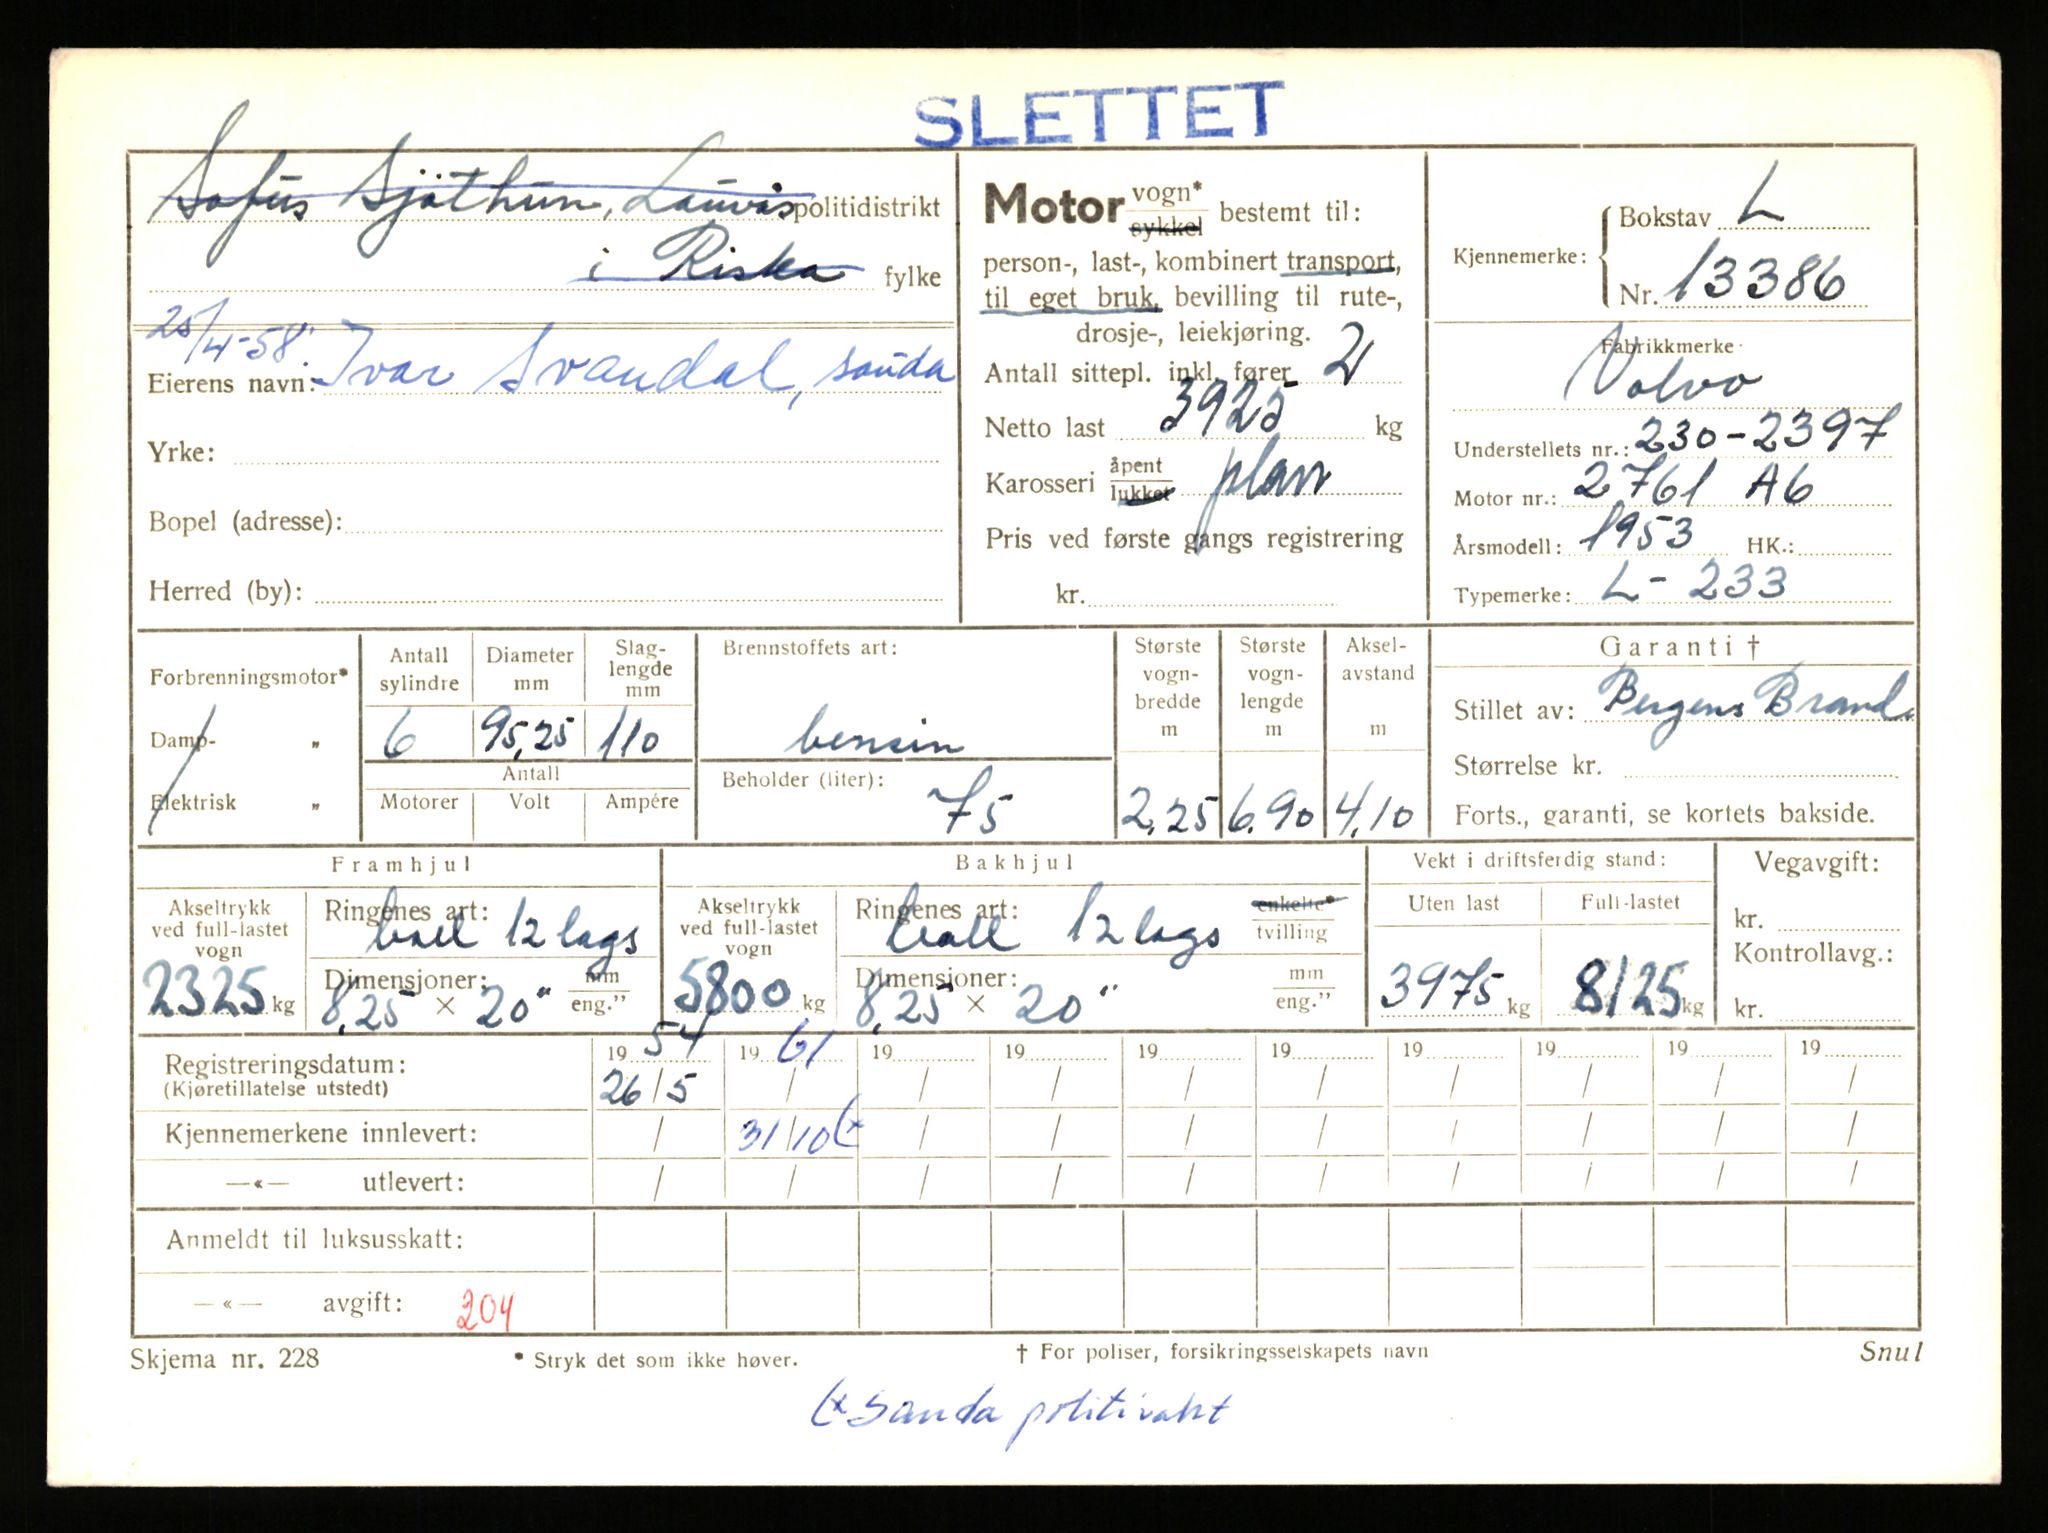 SLETTET
Sofus Sjöthun, Lauvås politidistrikt
i Riska fylke
25/4-58.
Eierens navn: Ivar Svandal, Sauda
Yrke:
Bopel (adresse):
Herred (by):
Motor vogn* sykkel bestemt til:
person-, last-, kombinert transport,
til eget bruk, bevilling til rute-,
drosje-, leiekjøring.
Antall sittepl. inkl. fører 2
Netto last 3925 kg
Karosseri åpent lukket plan
Pris ved første gangs registrering
kr.
Kjennemerke: Bokstav L
Nr. 13386
Fabrikkmerke
Volvo
Understellets nr.: 230-2397
Motor nr.: 2761 A6
Årsmodell: 1953 HK.:
Typemerke: L-233
Forbrenningsmotor*
Damp- „
Elektrisk „
Antall sylindre
6
Diameter mm
95,25
Slag-lengde mm
110
Antall
Motorer Volt Ampére
Brennstoffets art:
bensin
Beholder (liter):
75
Største vogn-bredde m
2,25
Største vogn-lengde m
6,90
Aksel-avstand m
4,10
Garanti †
Stillet av: Bergens Brand
Størrelse kr.
Forts., garanti, se kortets bakside.
Framhjul
Akseltrykk ved full-lastet vogn
2325 kg
Ringenes art:
ball 12 lags
Dimensjoner: mm eng."
8,25 × 20"
Bakhjul
Akseltrykk ved full-lastet vogn
5800 kg
Ringenes art: enkelte* tvilling
ball 12 lags
Dimensjoner: mm eng."
8,25 × 20"
Vekt i driftsferdig stand:
Uten last Full-lastet
3975 kg 8125 kg
Vegavgift:
kr.
Kontrollavg.:
kr.
Registreringsdatum: 19 54 19 61 19 19 19 19 19 19 19 19
(Kjøretillatelse utstedt) 26/5 / / / / / / / / /
Kjennemerkene innlevert: / 31/10 (x / / / / / / / /
—«— utlevert: / / / / / / / / / /
Anmeldt til luksusskatt:
—«— avgift: 204
Skjema nr. 228 * Stryk det som ikke høver. † For poliser, forsikringsselskapets navn Snul
(x Sauda politivakt